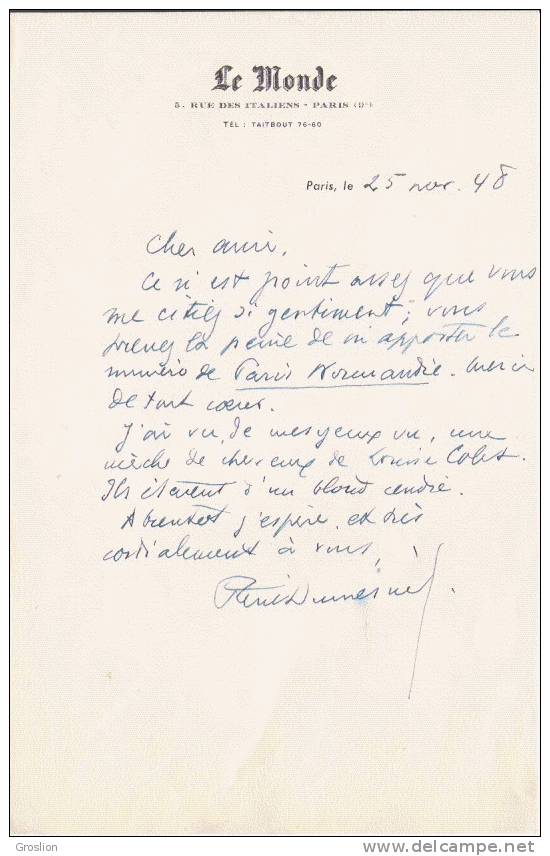 Le Monde
5, RUE DES ITALIENS - PARIS (9e)
TÉL : TAITBOUT 76-60
Paris, le 25 nov. 48
Cher ami,
Ce n'est point assez que vous
me citiez si gentiment ; vous
prenez la peine de m'apporter le
numéro de Paris Normandie. Merci
de tout cœur.
J'ai vu, de mes yeux vu, une
mèche de cheveux de Louise Colet.
Ils étaient d'un blond cendré.
A bientôt j'espère, et très
cordialement à vous,
René Dumesnil.
Groslion
www.delcampe.net